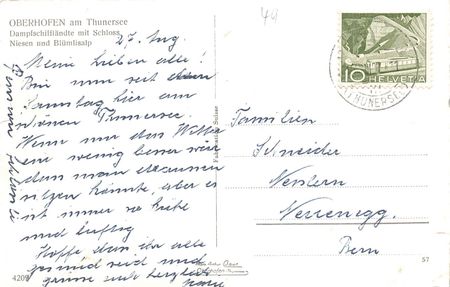 OBERHOFEN am Thunersee
Dampfschiffländte mit Schloss,
Niesen und Blümlisalp
44
27. Aug.
Meine lieben alle!
Bin nun seit dem
Samstag hier am
schönen Thunersee.
Wenn nur das Wetter
ein wenig besser wär
dass man draussen
sitzen könnte, aber es
ist immer so trübe
und luftig
Hoffe dass ihr alle
gesund seid und
grüsse euch herzlich
10 HELVETIA
THUNERSEE
Familien
Schneider
Neuenegg.
Bern
4209
57